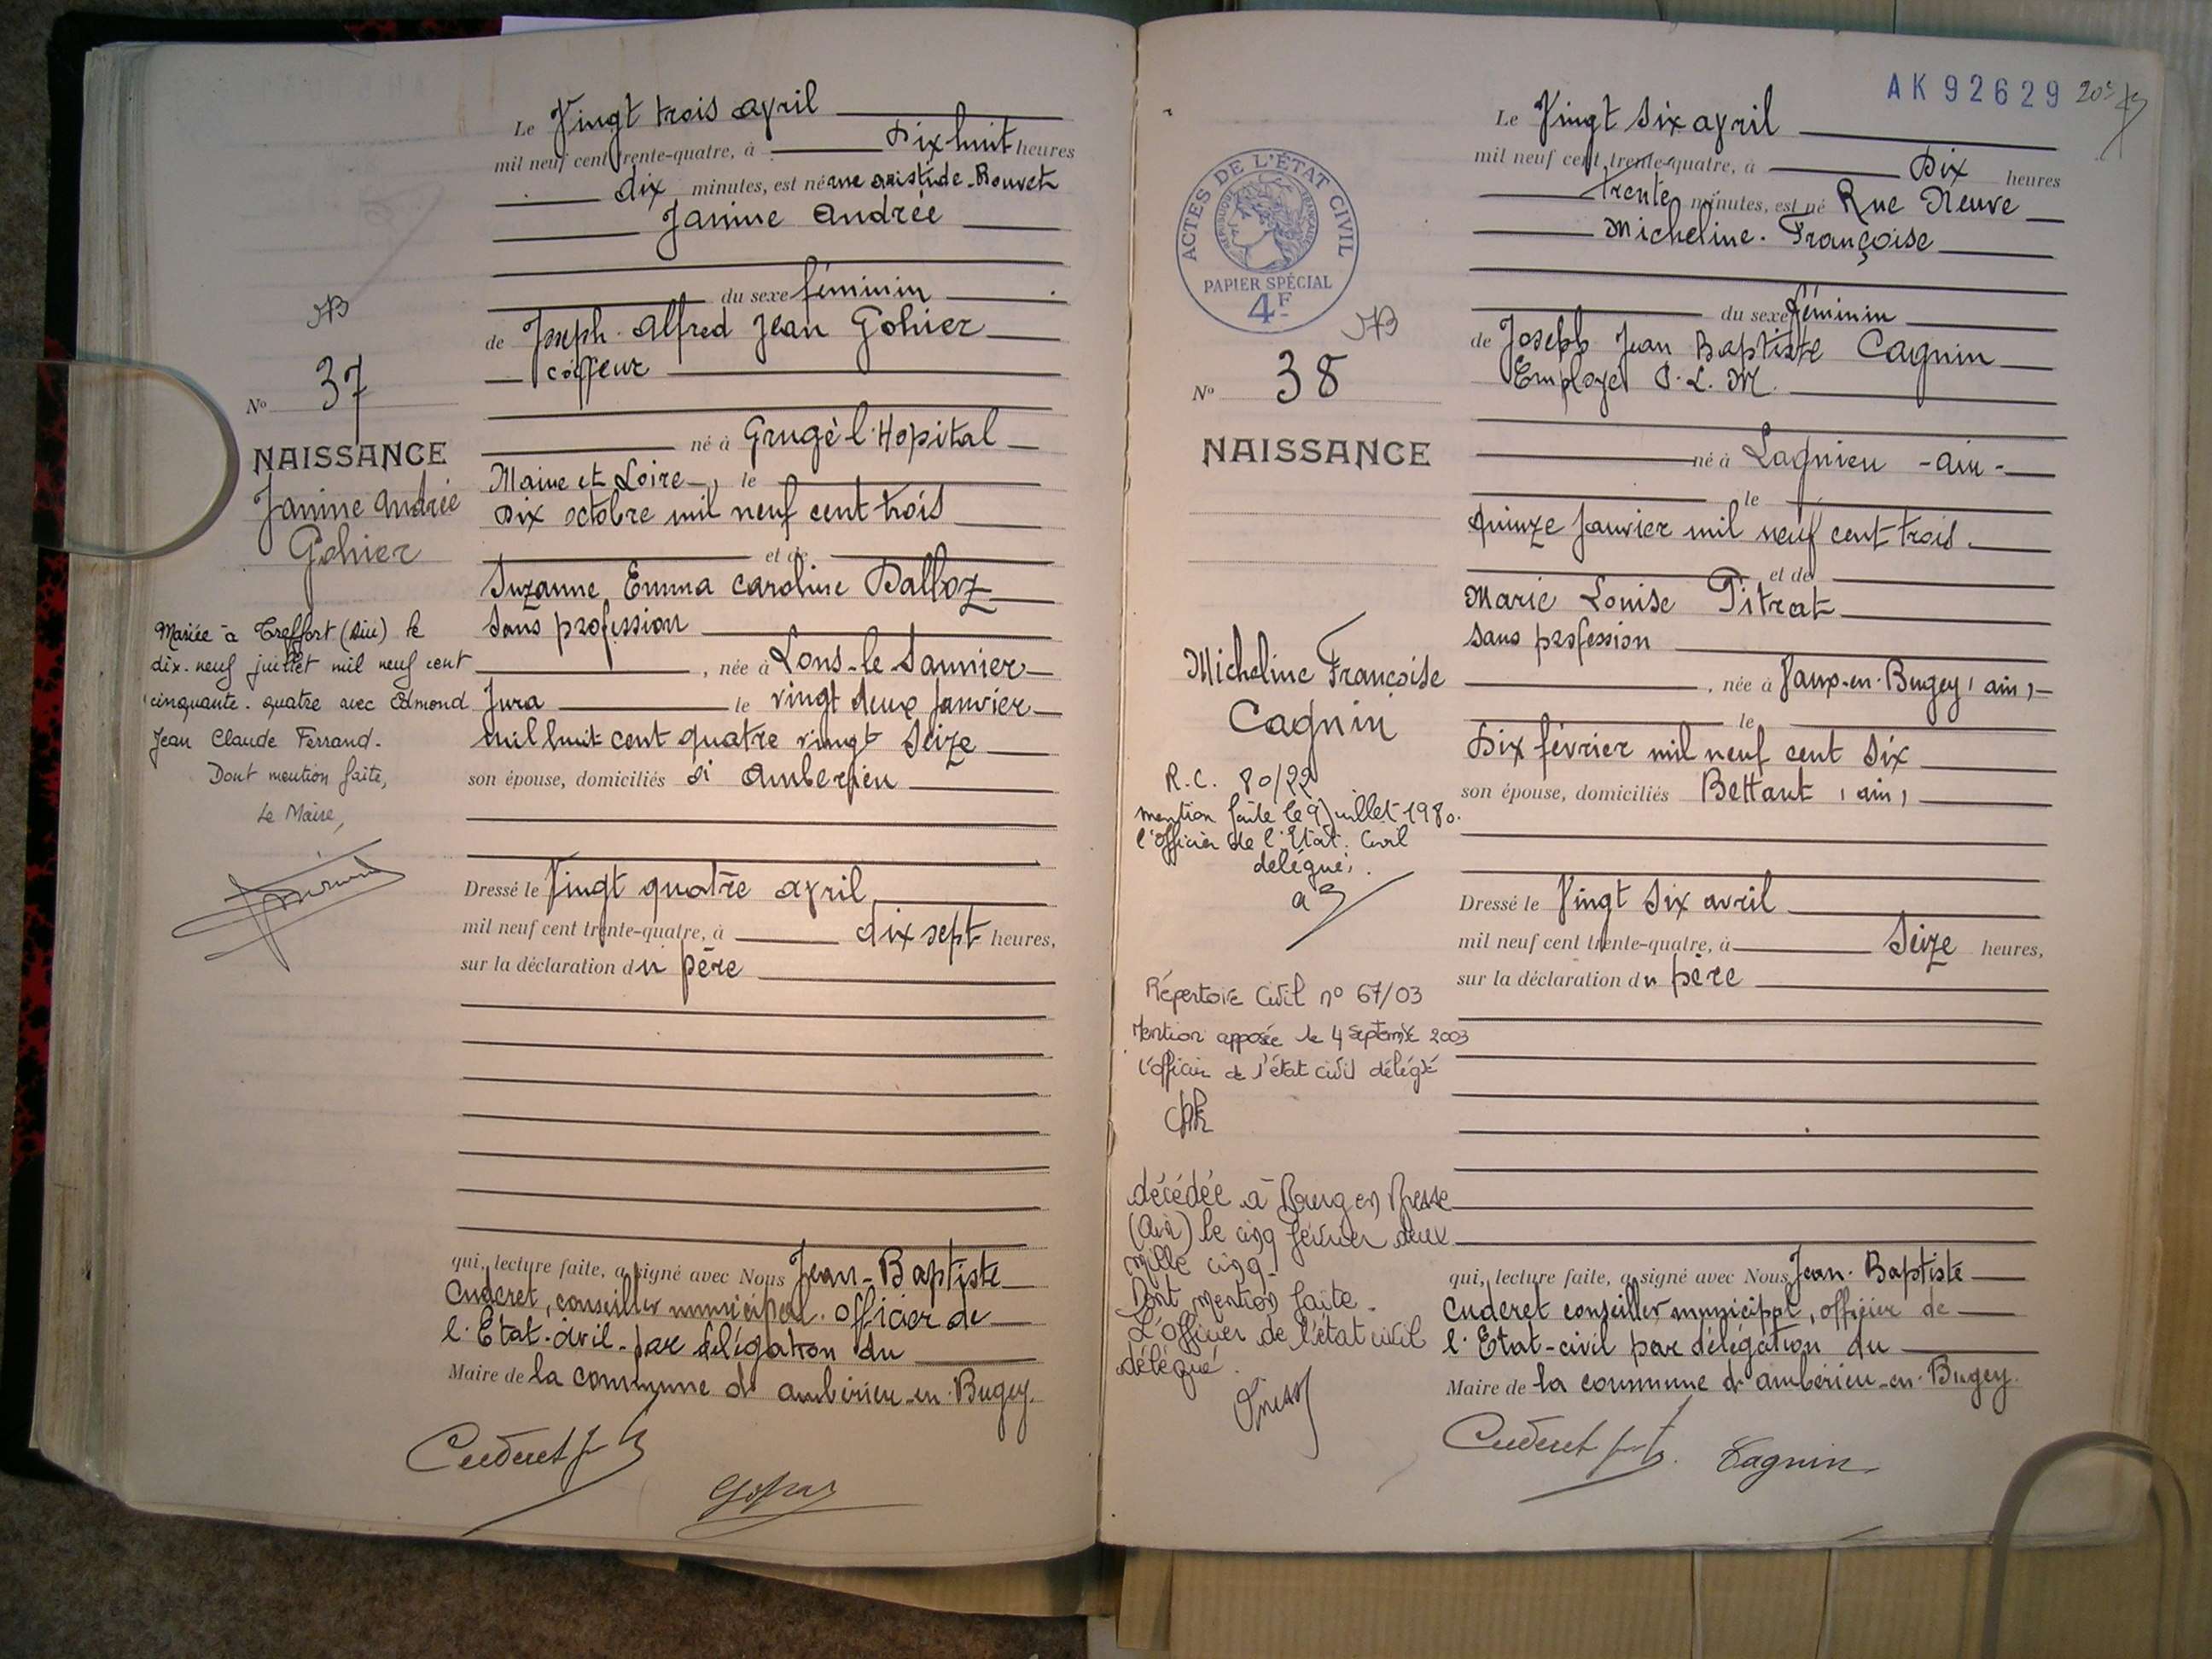 Le Vingt trois avril
mil neuf cent trente-quatre, à Dix huit heures
dix minutes, est né rue aristide-Bouvet
Janine Andrée
du sexe féminin
de Joseph Alfred Jean Gohier
coiffeur
né à Grugé l'Hopital
Maine et Loire, le
Dix octobre mil neuf cent trois
et de
Suzanne Emma Caroline Dalloz
Sans profession
, née à Lons-le-Saunier
Jura le vingt deux Janvier
mil huit cent quatre vingt Seize
son épouse, domiciliés à Ambérieu
Dressé le Vingt quatre avril
mil neuf cent trente-quatre, à dix sept heures,
sur la déclaration du père
qui, lecture faite, a signé avec Nous Jean-Baptiste
Cuderet, conseiller municipal. officier de
l'Etat-civil-par délégation du
Maire de la commune d'ambérieu-en-Bugey.
Cuderet
N° 37
NAISSANCE
Janine Andrée
Gohier
Mariée à Treffort (Ain) le
dix-neuf juillet mil neuf cent
cinquante-quatre avec Edmond
Jean Claude Ferrand.
Dont mention faite,
Le Maire,
AK92629
Le Vingt Six avril
mil neuf cent trente-quatre, à Dix heures
trente minutes, est né Rue Neuve
Micheline. Françoise
du sexe féminin
de Joseph Jean Baptiste Cagnin
Employé P.L.M.
né à Lagnieu -ain-
le
quinze Janvier mil neuf cent trois
et de
Marie Louise Pitrat
sans profession
, née à Vaux-en-Bugey (ain)
le
Dix février mil neuf cent Six
son épouse, domiciliés Bettant (ain)
Dressé le Vingt Six avril
mil neuf cent trente-quatre, à Seize heures,
sur la déclaration du père
qui, lecture faite, a signé avec Nous Jean-Baptiste
Cuderet conseiller municipal, officier de
l'Etat-civil par délégation du
Maire de la commune d'ambérieu-en-Bugey.
Cuderet Cagnin
ACTES DE L'ÉTAT CIVIL
RÉPUBLIQUE FRANÇAISE
PAPIER SPÉCIAL
4F
N° 38
NAISSANCE
Micheline Françoise
Cagnin
R.C. 80/22
mention faite le 9 juillet 1980.
l'officier de l'Etat. Civil
délégué.
Répertoire Civil n° 67/03
Mention apposée le 4 septembre 2003
l'officier de l'état civil délégué
décédée à Bourg en Bresse
(Ain) le cinq février deux
mille cinq.
Dont mention faite.
L'officier de l'état civil
délégué.